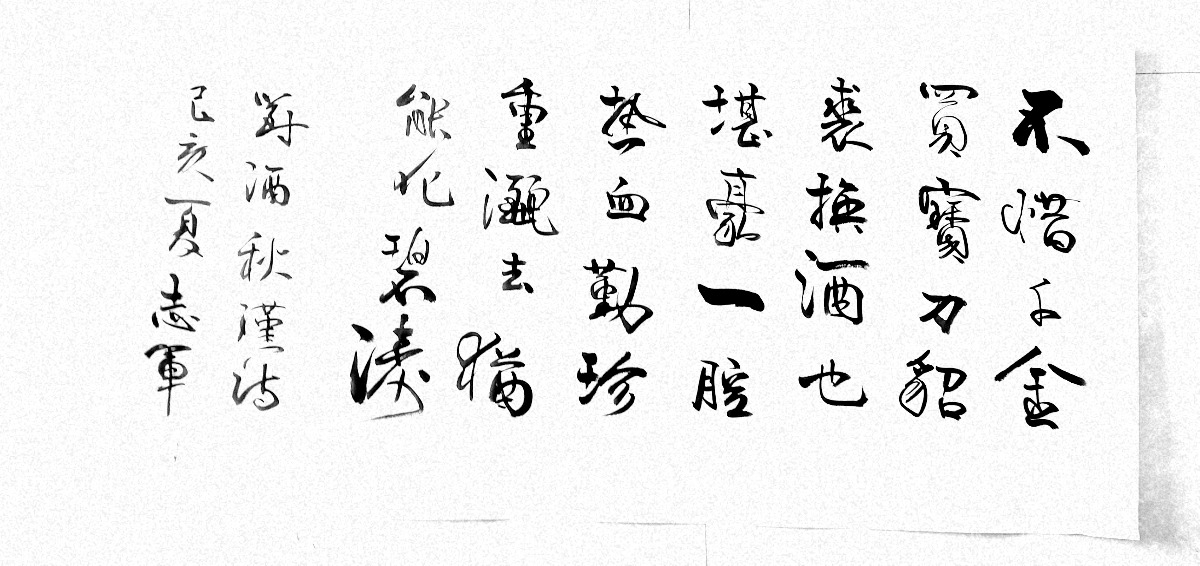 不惜千金
買寶刀貂
裘換酒也
堪豪一腔
熱血勤珍
重灑去猶
能化碧濤
對酒秋瑾詩
己亥夏志軍